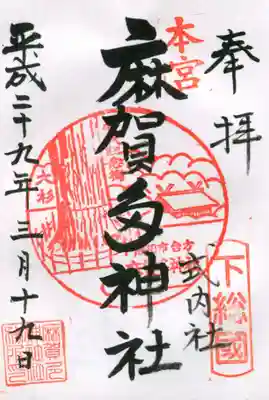 奉拝
下総國
式内社
本宮
麻賀多神社
大杉
平成二十九年三月十九日